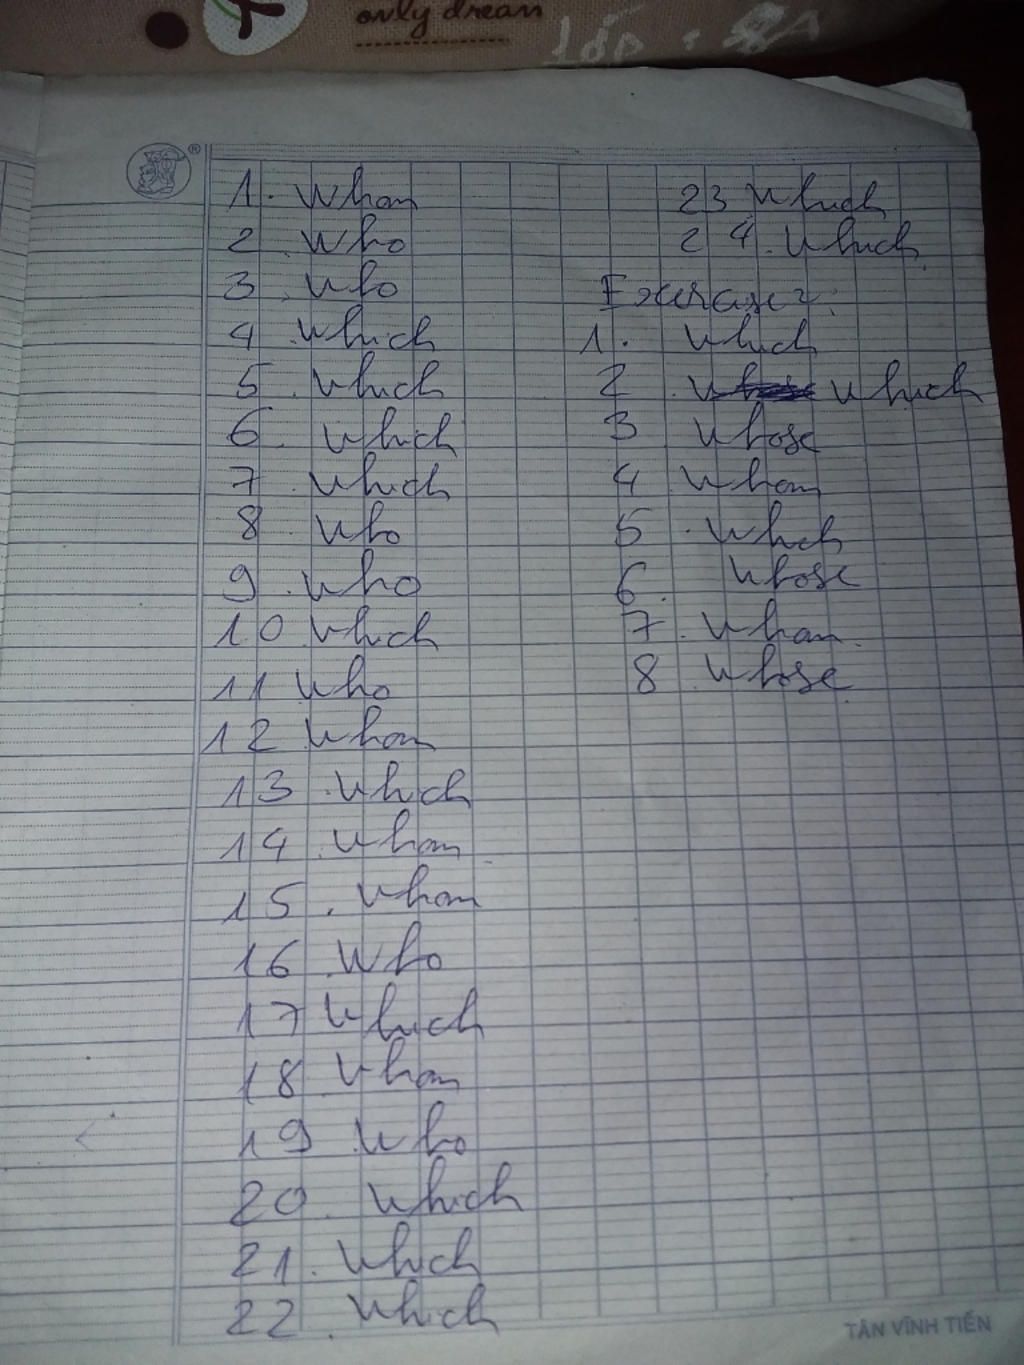 only dream
lớp : 8A
1. Whom
2. Who
3. Who
4. Which
5. Which
6. Which
7. Which
8. Who
9. Who
10 Which
11 Who
12 Whom
13. Which
14. Whom
15. Whom
16. Who
17 Which
18. Whom
19. Who
20. Which
21. Which
22. Which
23 Which
24. Which
Exercise 2:
1. Which
2. Which
3 Whose
4 Whom
5. Which
6. Whose
7. Whom
8 Whose
TÂN VĨNH TIẾN